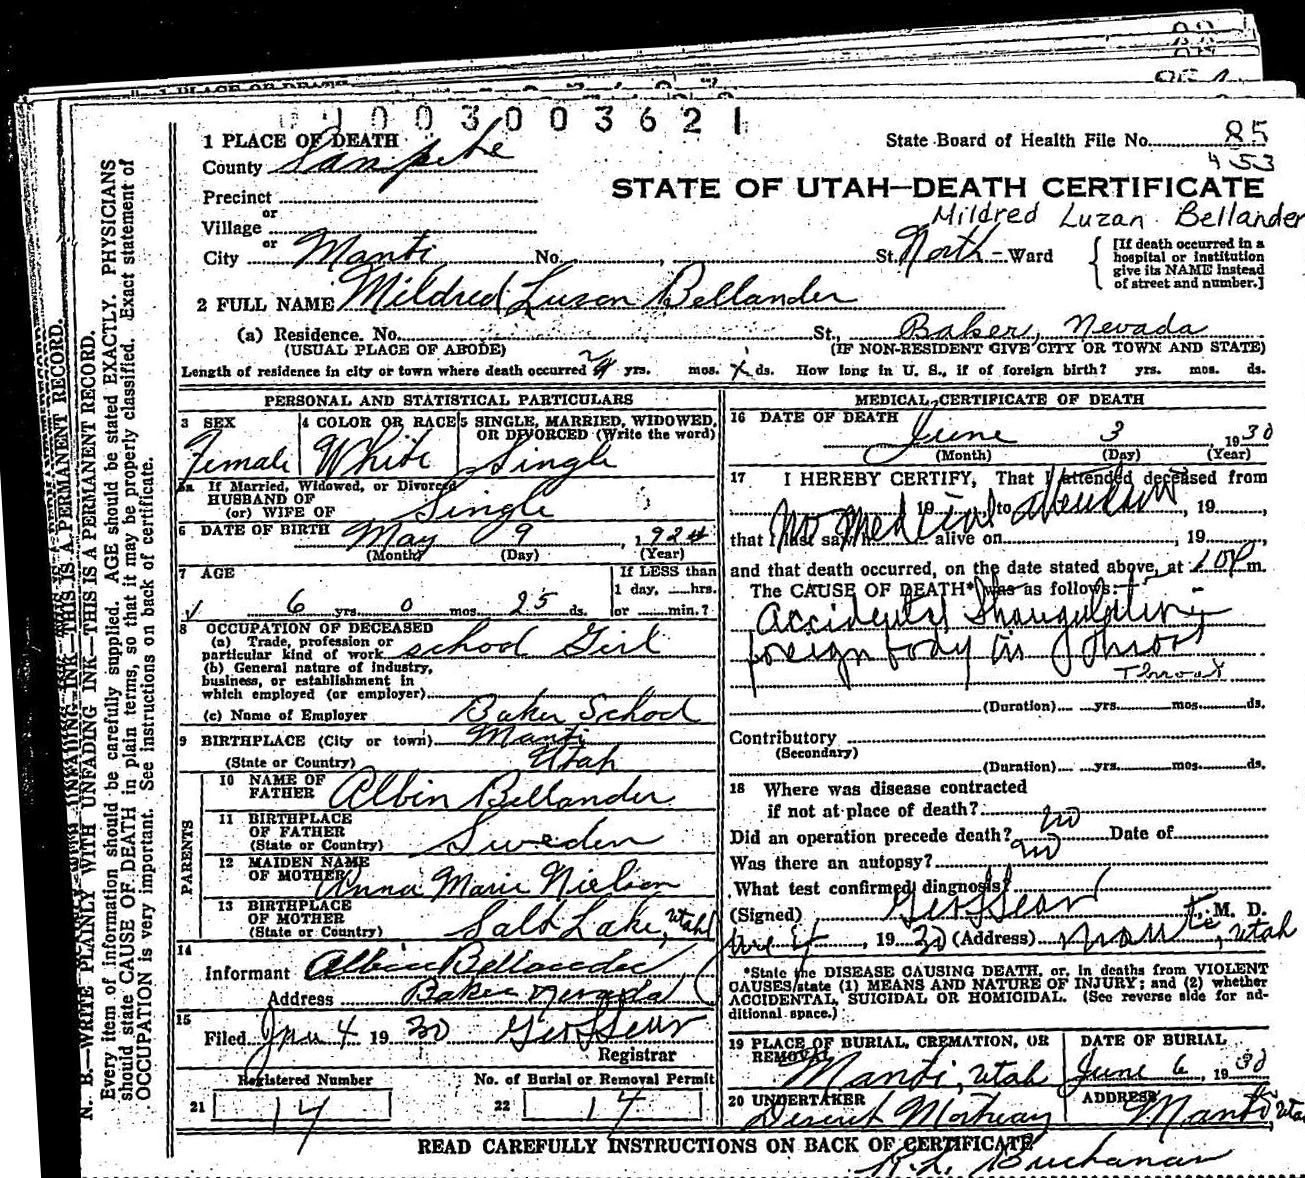 1003003621
1 PLACE OF DEATH
State Board of Health File No. 85
453
County Sanpete
STATE OF UTAH—DEATH CERTIFICATE
Precinct
Mildred Luzan Bellander
or
Village
or
City Manti No. , St. North - Ward
[If death occurred in a hospital or institution give its NAME instead of street and number.]
2 FULL NAME Mildred Luzon Bellander
(a) Residence. No. St., Baker, Nevada
(USUAL PLACE OF ABODE) (IF NON-RESIDENT GIVE CITY OR TOWN AND STATE)
Length of residence in city or town where death occurred yrs. mos. ds. How long in U. S., if of foreign birth? yrs. mos. ds.
PERSONAL AND STATISTICAL PARTICULARS
3 SEX Female
4 COLOR OR RACE White
5 SINGLE, MARRIED, WIDOWED, OR DIVORCED (Write the word) Single
5a If Married, Widowed, or Divorced
HUSBAND OF
(or) WIFE OF Single
6 DATE OF BIRTH May 9, 1924
(Month) (Day) (Year)
7 AGE
6 yrs. 0 mos. 25 ds.
If LESS than
1 day, ___hrs.
or ___min.?
8 OCCUPATION OF DECEASED
(a) Trade, profession or
particular kind of work school Girl
(b) General nature of industry,
business, or establishment in
which employed (or employer)
(c) Name of Employer Baker School
9 BIRTHPLACE (City or town) Manti
(State or Country) Utah
PARENTS
10 NAME OF
FATHER Albin Bellander
11 BIRTHPLACE
OF FATHER
(State or Country) Sweden
12 MAIDEN NAME
OF MOTHER Anna Marie Nielson
13 BIRTHPLACE
OF MOTHER
(State or Country) Salt Lake, Utah
14
Informant Albin Bellander
Address Baker Nevada
15
Filed 4 1930
Registrar
Registered Number
No. of Burial or Removal Permit
21 14
22 14
MEDICAL CERTIFICATE OF DEATH
16 DATE OF DEATH
June 3, 1930
(Month) (Day) (Year)
17 I HEREBY CERTIFY, That I attended deceased from
, 19 to , 19 ,
No Medical attendant
that I last saw h alive on , 19 ,
and that death occurred, on the date stated above, at m.
The CAUSE OF DEATH* was as follows:
Accidental Strangulation
foreign body in throat
Throat
(Duration) yrs. mos. ds.
Contributory
(Secondary)
(Duration) yrs. mos. ds.
18 Where was disease contracted
if not at place of death?
Did an operation precede death? no Date of
Was there an autopsy? no
What test confirmed diagnosis?
(Signed) , M. D.
, 1930 (Address) Manti, Utah
*State the DISEASE CAUSING DEATH, or, in deaths from VIOLENT
CAUSES, state (1) MEANS AND NATURE OF INJURY; and (2) whether
ACCIDENTAL, SUICIDAL OR HOMICIDAL. (See reverse side for ad-
ditional space.)
19 PLACE OF BURIAL, CREMATION, OR
REMOVAL Manti, Utah
DATE OF BURIAL
June 6, 1930
20 UNDERTAKER
Deseret Mortuary
ADDRESS
Manti, Utah
READ CAREFULLY INSTRUCTIONS ON BACK OF CERTIFICATE
Buchanan
N. B.—WRITE PLAINLY WITH UNFADING INK—THIS IS A PERMANENT RECORD.
Every item of information should be carefully supplied. AGE should be stated EXACTLY. PHYSICIANS
should state CAUSE OF DEATH in plain terms, so that it may be properly classified. Exact statement of
OCCUPATION is very important. See instructions on back of certificate.